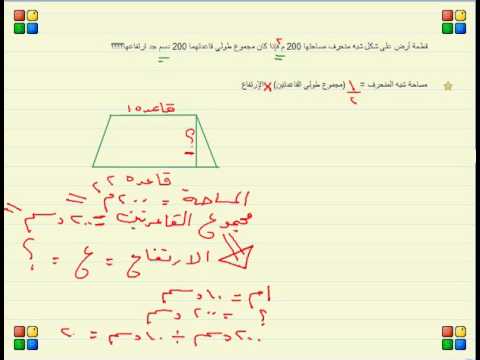 قطعة أرض على شكل شبه منحرف مساحتها 200 م٢ فإذا كان مجموع طولي قاعدتهما 200 دسم جد ارتفاعها؟؟؟؟
مساحة شبه المنحرف = ١/٢ (مجموع طولي القاعدتين) × الإرتفاع
قاعده ١٥
؟
قاعده ٢٥
المساحة = ٢٠٠ م٢
مجموع القاعدتين = ٢٠٠ دسم
الارتفاع = ع = ؟
١م = ١٠ دسم
؟ = ٢٠٠ دسم
٢٠٠ دسم ÷ ١٠ دسم = ٢٠